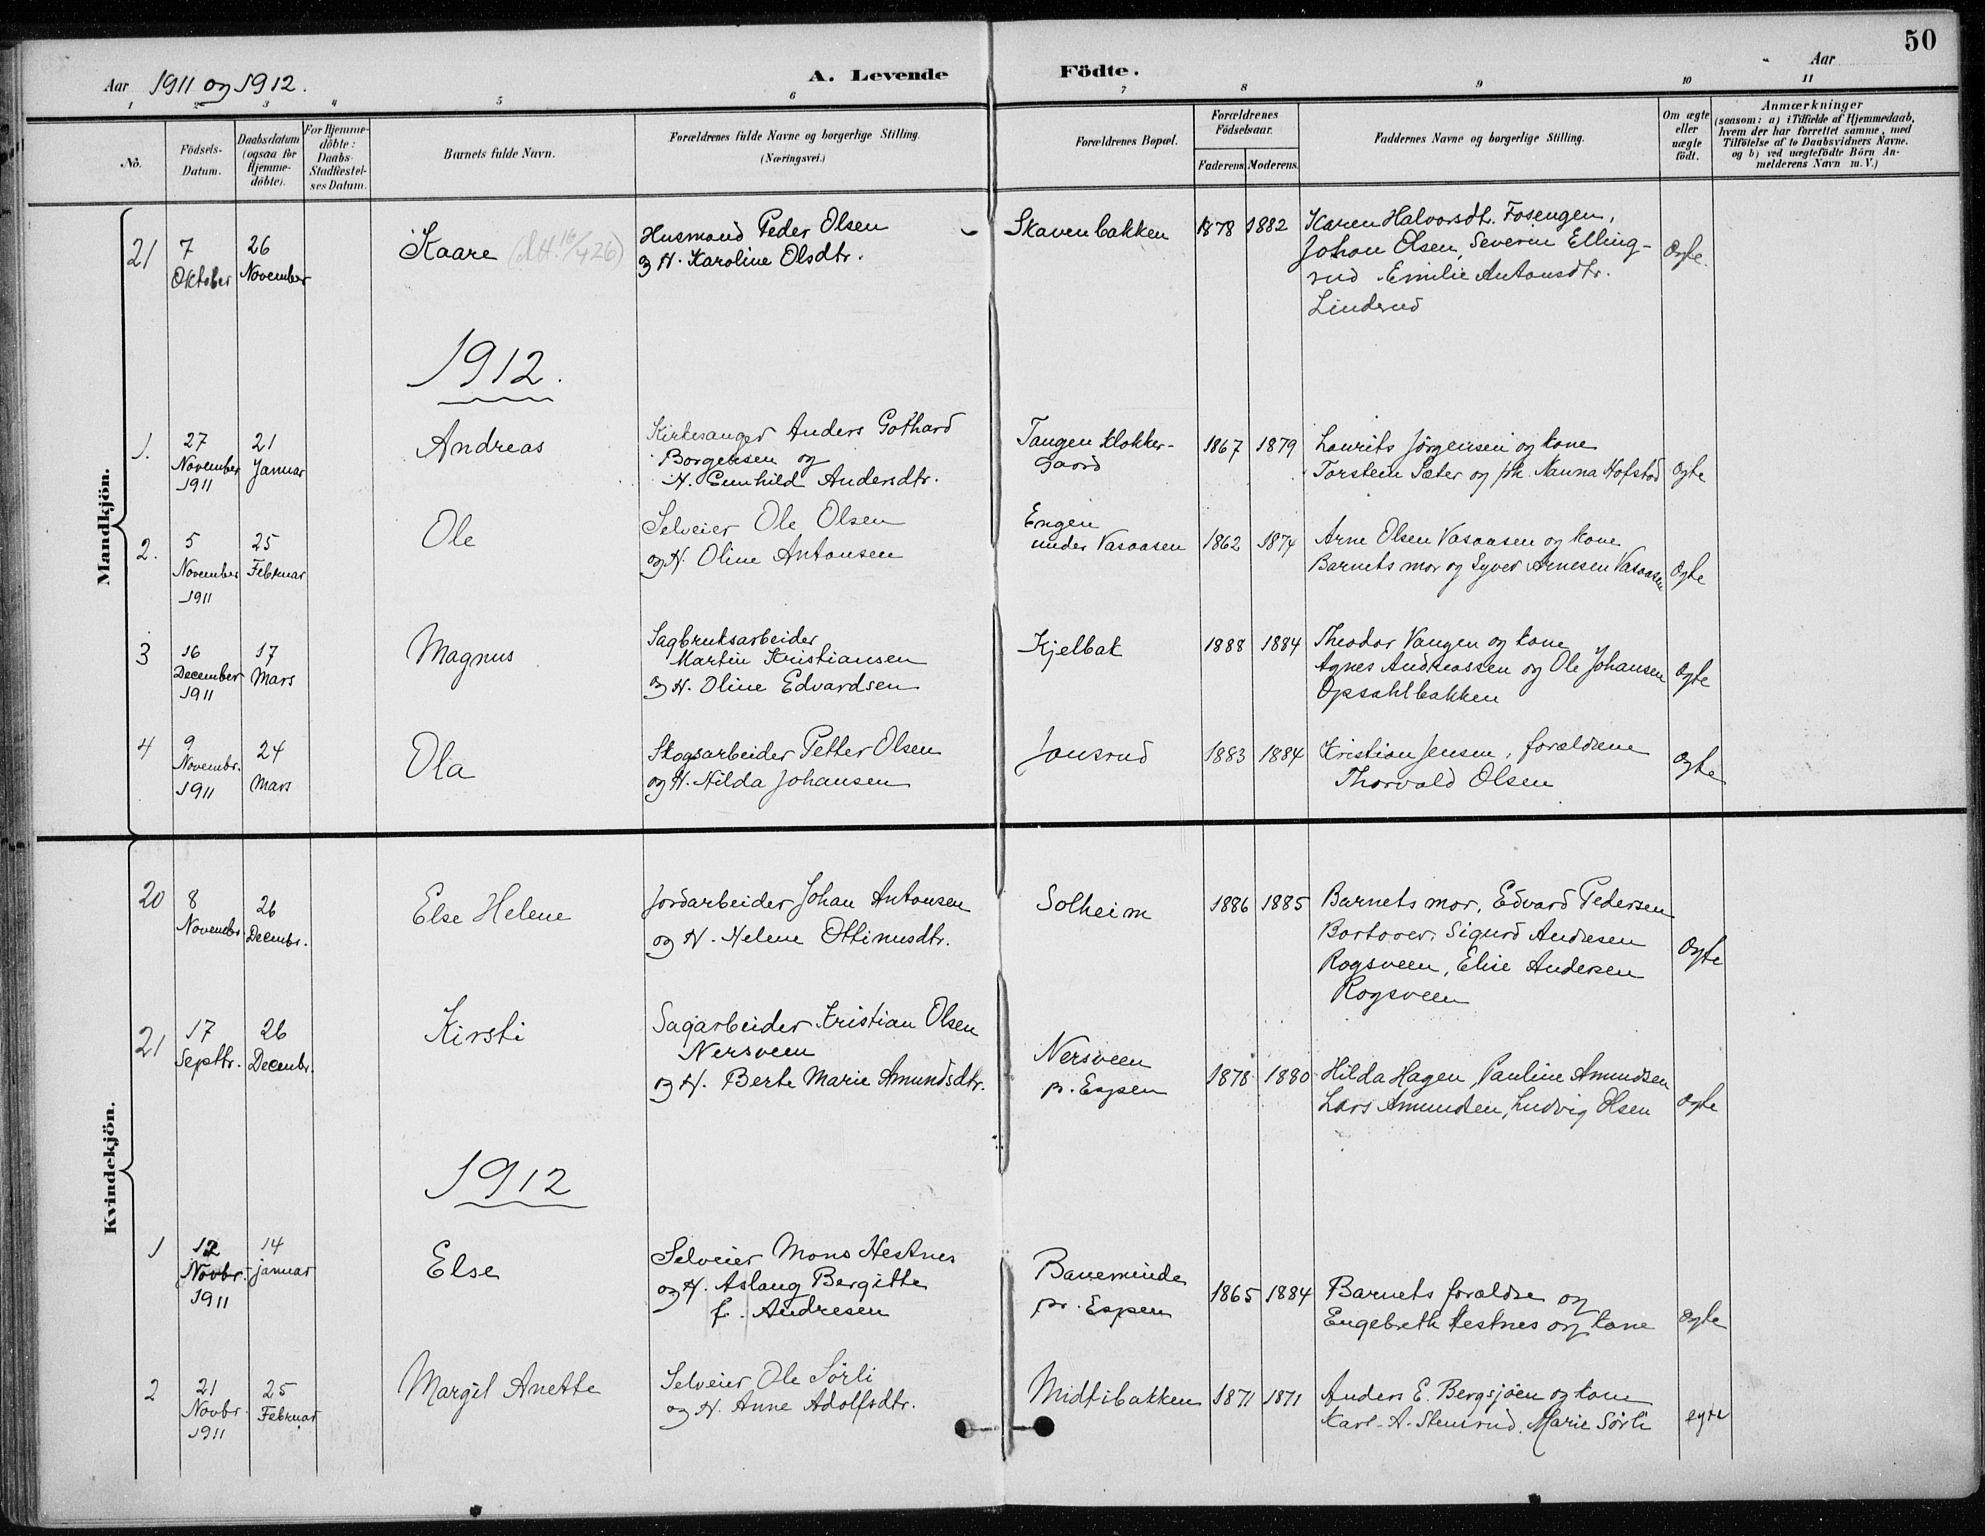 50
Aar 1911 og 1912.
A. Levende Födte.
Aar
1 2 3 4 5 6 7 8 9 10 11
No.
Födsels-
Datum.
Daabsdatum
(ogsaa for
Hjemme-
döbte).
For Hjemme-
döbte:
Daabs-
Stadfæstel-
ses Datum.
Barnets fulde Navn.
Forældrenes fulde Navne og borgerlige Stilling.
(Næringsvei.)
Forældrenes Bopæl.
Forældrenes
Födselsaar.
Faderens. Moderens.
Faddernes Navne og borgerlige Stilling.
Om ægte
eller
uægte
födt.
Anmærkninger
(saasom: a) i Tilfælde af Hjemmedaab,
hvem der har forrettet samme, med
Tilföielse af to Daabsvidners Navne.
og b) ved uægtefödte Börn An-
melderens Navn m. V.)
Mandkjön.
21
7
Oktober
26
November
Kaare (Att. 16/4 26)
Husmand Peder Olsen
og H. Karoline Olsdtr.
Skavenbakken
1878 1882
Karen Halvorsdt. Fosengen,
Johan Olsen, Severin Elling-
rud Emilie Antonsdtr.
Linderud
Ægte.
1912.
1.
27
November
1911
21
Januar
Andreas
Kirkesanger Anders Gothard
Borgersen og
H. Gunhild Andersdtr.
Tangen klokker-
gaard
1867 1879
Laurits Jørgensen og kone
Torstein Sæter og frk. Nanna Hofstad
Ægte
2.
5
November
1911
25
Februar
Ole
Selveier Ole Olsen
og H. Oline Antonsen
Engen
under Vasaasen
1862 1874
Arne Olsen Vasaasen og kone
Barnets mor og Syver Arnesen Vasaasen
Ægte
3
16
December
1911
17
Mars
Magnus
Sagbruksarbeider
Martin Kristiansen
og H. Oline Edvardsen
Kjelbak
1888 1884
Theodor Vangen og kone
Agnes Andreassen og Ole Johansen
Opsahlbakken
Ægte
4
9
Novembr.
1911
24
Mars
Ola
Skogsarbeider Petter Olsen
og H. Hilda Johansen
Jonsrud
1883 1884
Kristian Jensen, forældrene
Thorvald Olsen
Ægte
Kvindekjön.
20
8
Novembr.
26
Decembr.
Else Helene
Jordarbeider Johan Antonsen
og H. Helene Ottinusdtr.
Solheim
1886 1885
Barnets mor, Edvard Pedersen
Bortover, Sigurd Andresen
Rogsveen, Elise Andersen
Rogsveen
Ægte
21
17
Septbr.
26
Decembr.
Kirsti
Sagarbeider Kristian Olsen
Nersveen
og H. Berte Marie Amundsdtr.
Nersveen
pr. Espen
1878 1880
Hilda Hagen, Pauline Amundsen
Lars Amundsen, Ludvig Olsen
Ægte
1912
1
12
Novbr.
1911
14
januar
Else
Selveier Mons Hestnes
og H. Aslaug Bergitte
f. Andresen
Baneminde
pr. Espen
1865 1884
Barnets forældre og
Engebreth Hestnes og kone
Ægte
2
21
Novbr
1911
25
Februar
Margit Anette
Selveier Ole Sørli
og H. Anne Adolfsdtr.
Midtibakken
1871 1871
Anders E. Bergsjøen og kone
Karl A. Stensrud. Marie Sørli
egte